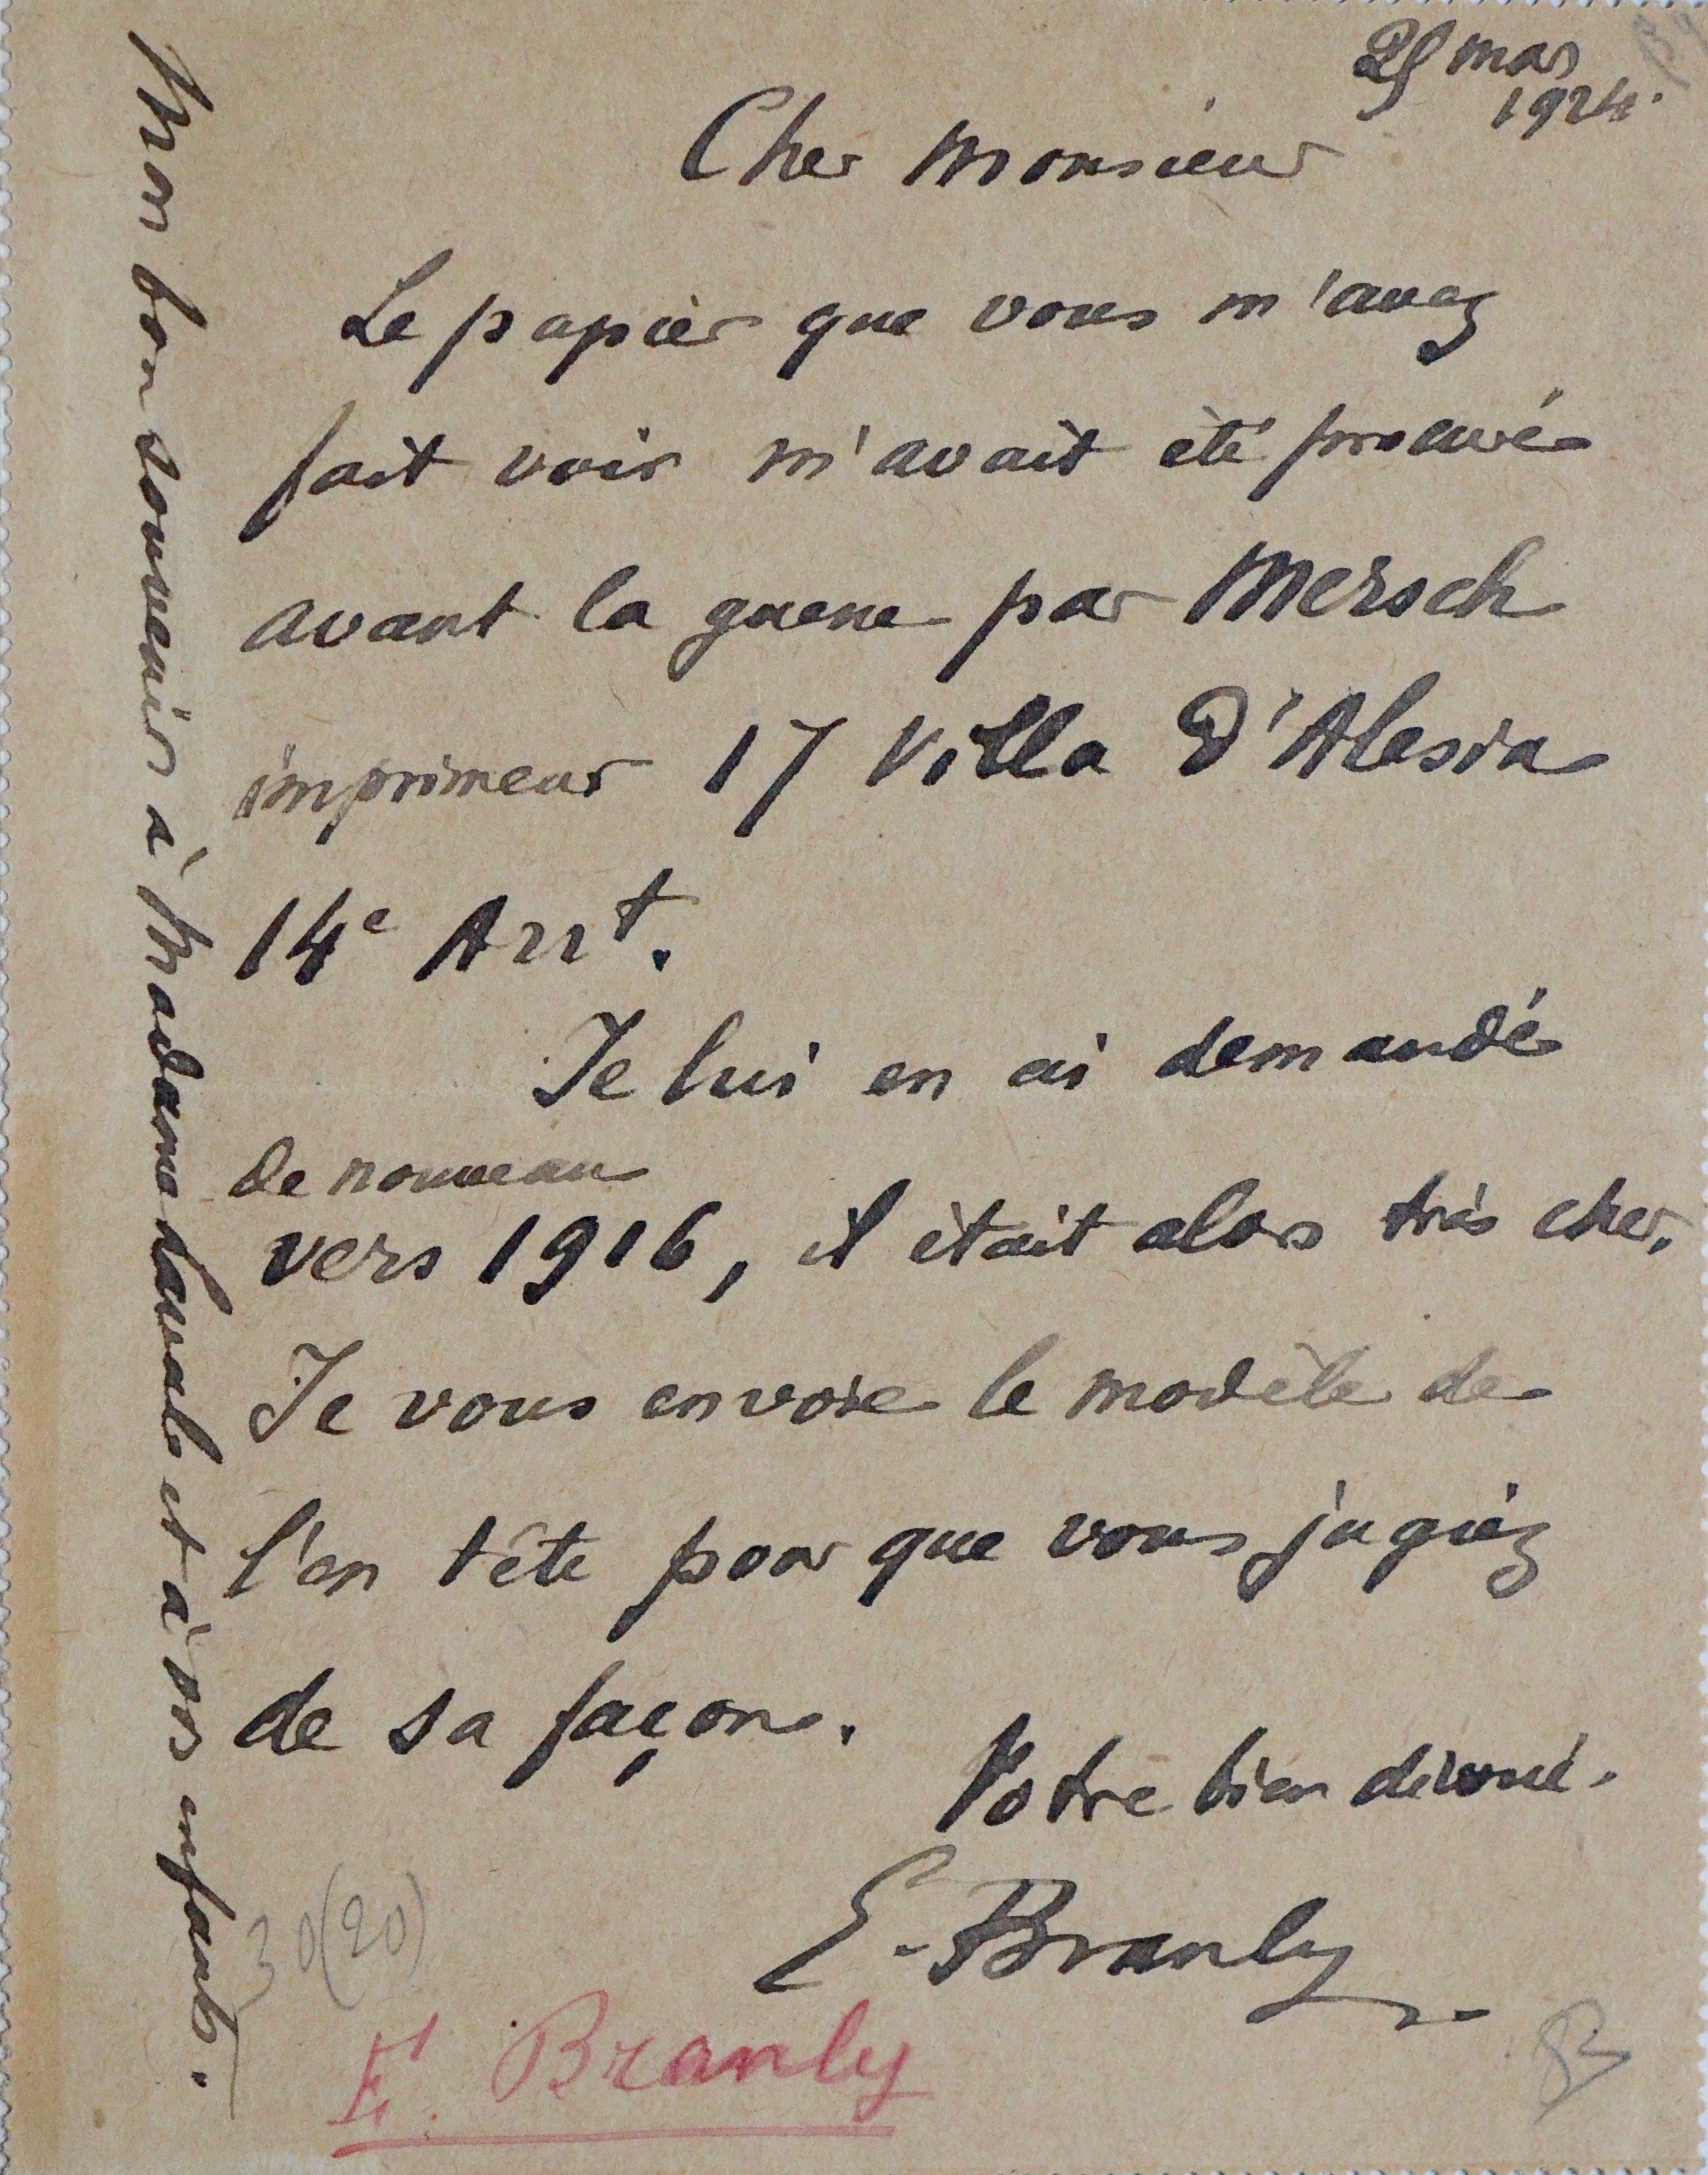 25 mars
1924.
Cher Monsieur
Le papier que vous m'avez
fait voir m'avait été procuré
avant la guerre par Mersch
imprimeur 17 Villa d'Alesia
14e Arrt.
Je lui en ai demandé
de nouveau
vers 1916, il était alors très cher.
Je vous envoie le modèle de
l'en tête pour que vous jugiez
de sa façon.
Votre bien dévoué.
E. Branly
Mon bon souvenir à Madame et à vos enfants.
30(20)
E. Branly